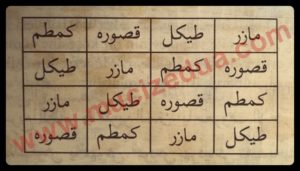 مازر طيكل قصوره كمطم
قصوره كمطم مازر طيكل
كمطم قصوره طيكل مازر
طيكل مازر كمطم قصوره
www.mucizedua.com